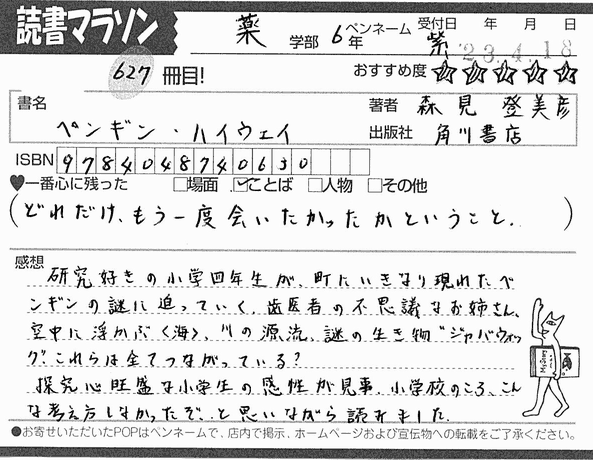 読書マラソン 薬 学部 6年 ペンネーム 紫 受付日 年 月 日
'23.4.18
627 冊目! おすすめ度 ☆☆☆☆☆
書名 著者 森見 登美彦
ペンギン・ハイウェイ 出版社 角川書店
ISBN 9784048740630
♥一番心に残った □場面 ☑ことば □人物 □その他
(どれだけ、もう一度会いたかったかということ。)
感想
研究好きの小学四年生が、町にいきなり現れたペ
ンギンの謎に迫っていく。歯医者の不思議なお姉さん、
空中に浮かぶ〈海〉、川の源流、謎の生き物"ジャバウォッ
ク"。これらは全てつながっている?
探究心旺盛な小学生の感性が見事。小学校のころ、こん
な考え方しなかったぞ、と思いながら読みました。
●お寄せいただいたPOPはペンネームで、店内で掲示、ホームページおよび宣伝物への転載をご了承ください。